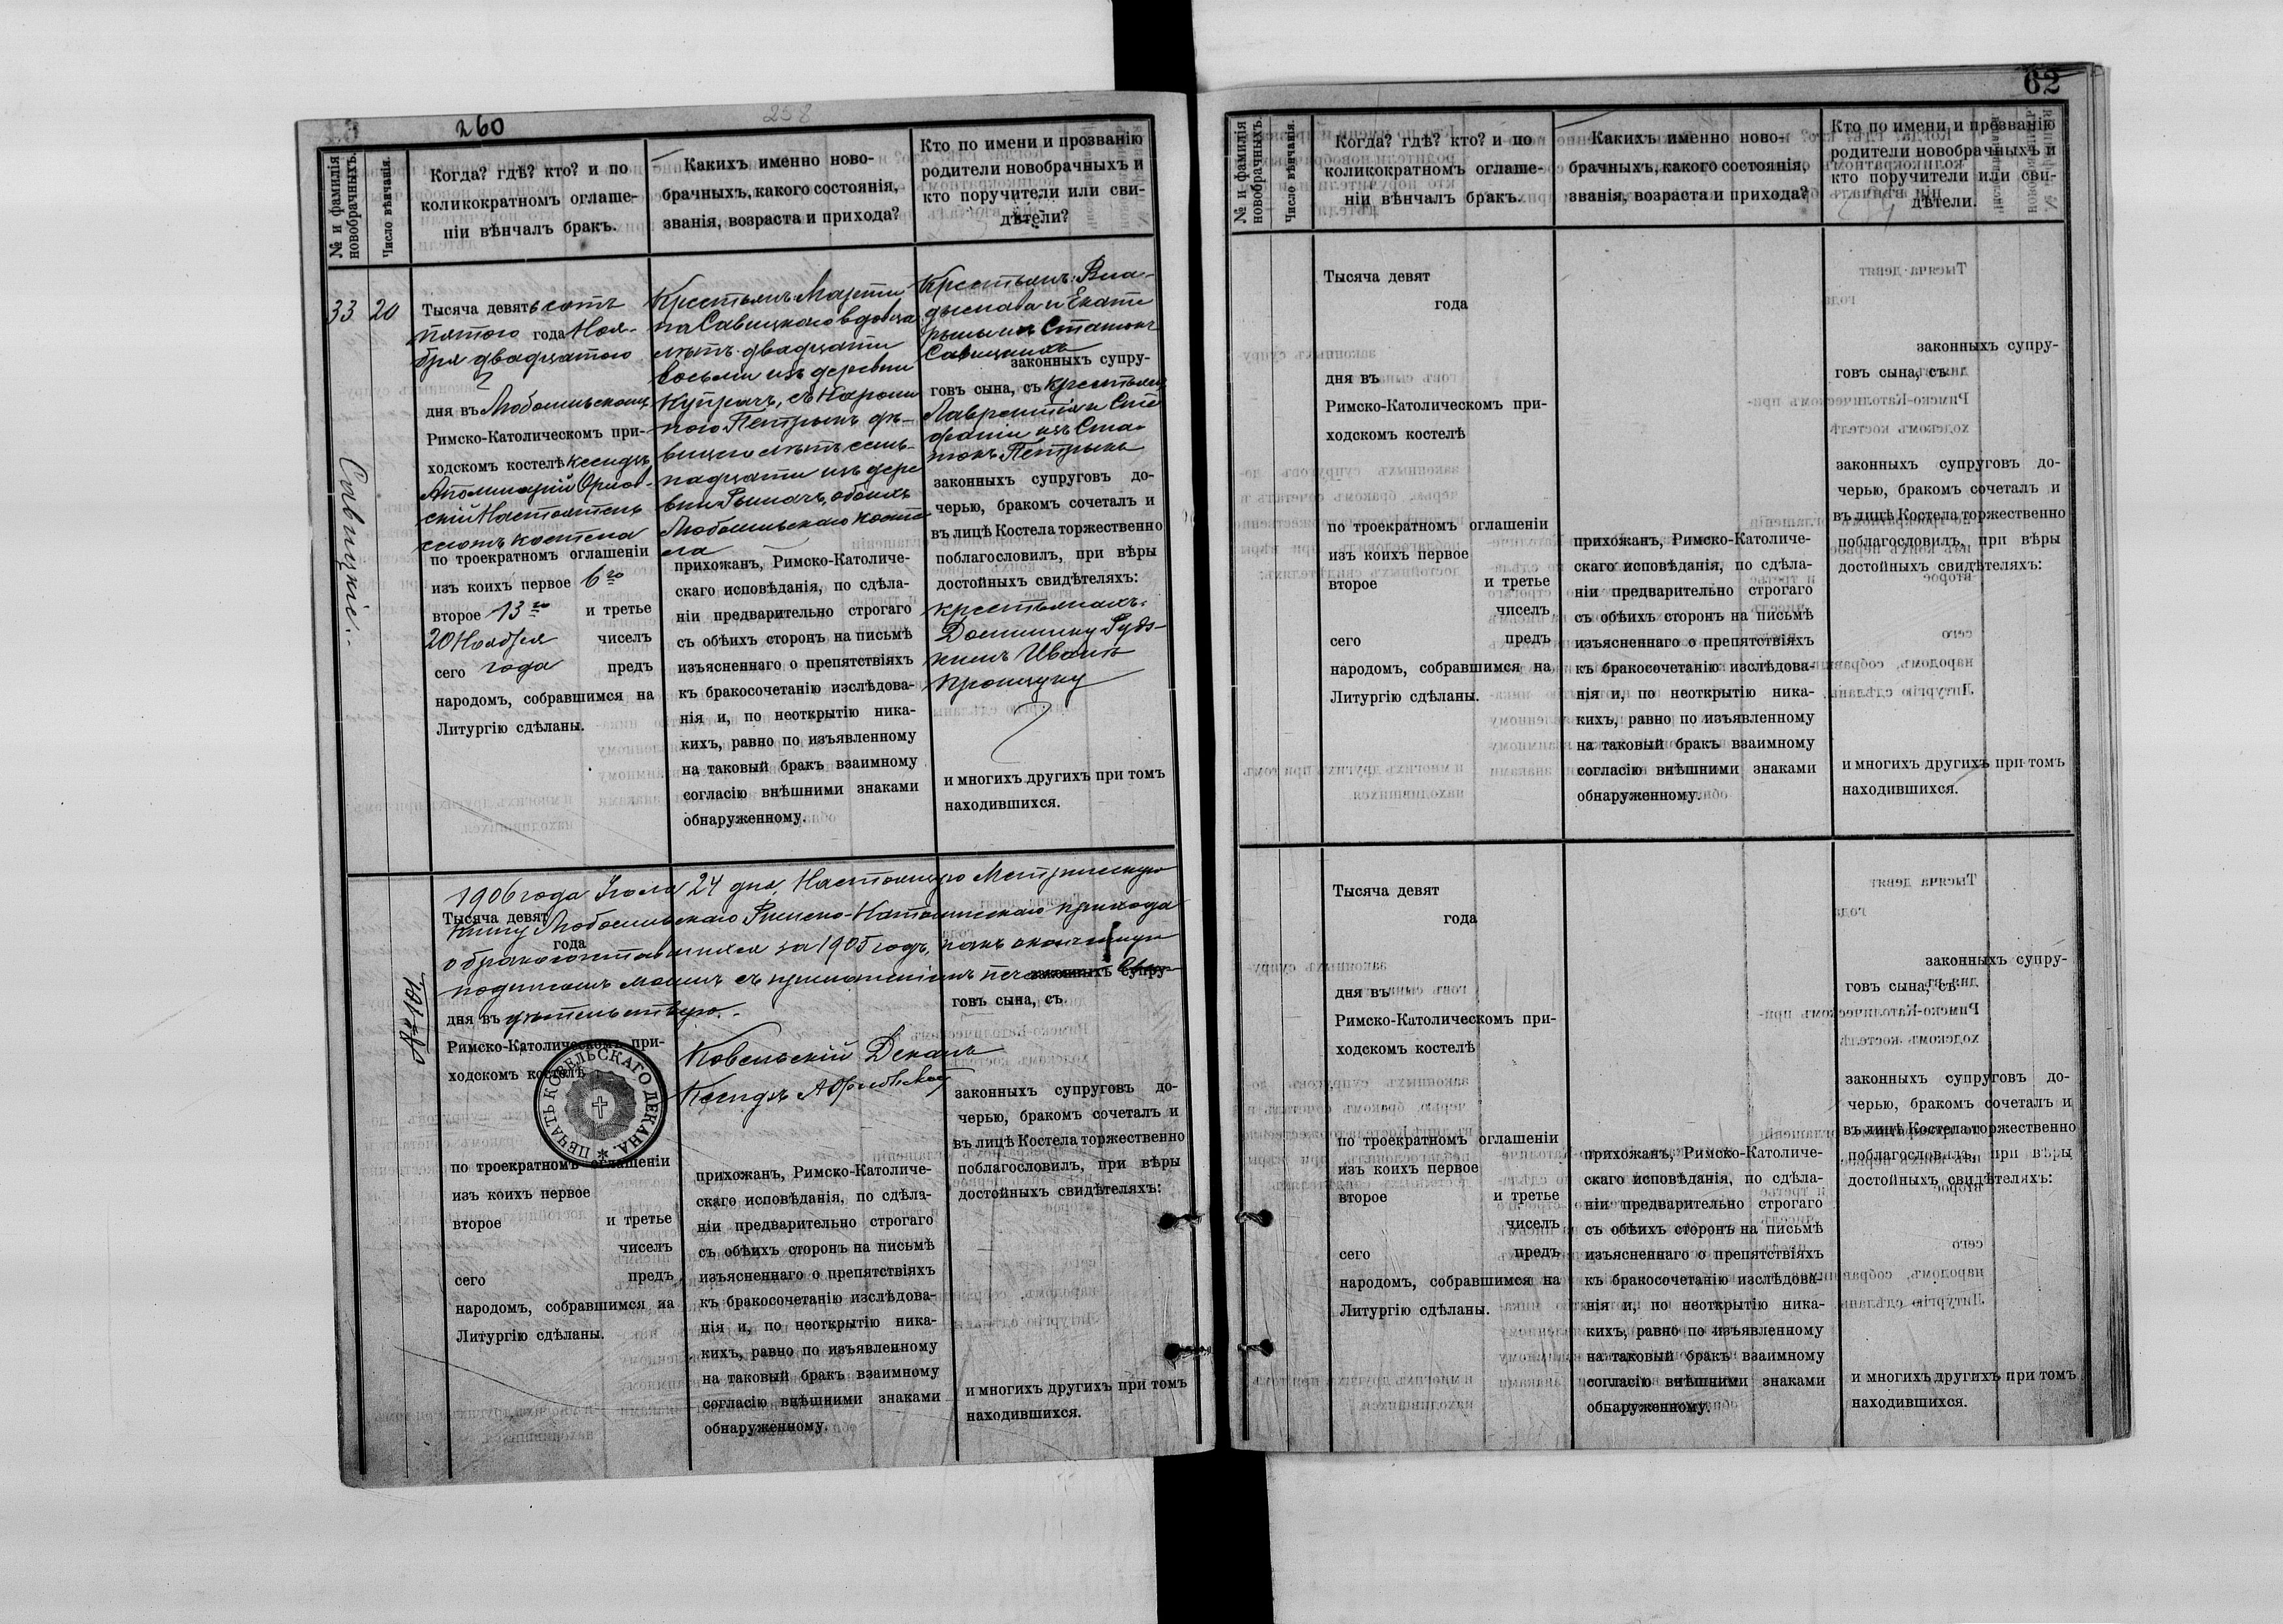 260
258
№ и фамилія новобрачныхъ.
Число вѣнчанія.
Когда? гдѣ? кто? и по
коликократномъ оглаше-
ніи вѣнчалъ бракъ.
Какихъ именно ново-
брачныхъ, какого состоянія,
званія, возраста и прихода?
Кто по имени и прозванію
родители новобрачныхъ и
кто поручители или сви-
дѣтели?
33
20
Савицкіе.
Тысяча девятьсотъ
пятого года Ноя-
бря двадцатого
дня въ Любомльскомъ
Римско-Католическомъ при-
ходскомъ костелѣ Ксендзъ
Аполинарій Орлов-
скій Настоятель
сего костела
по троекратномъ оглашеніи
изъ коихъ первое 6го
второе 13го и третье
20 Ноября чиселъ
сего года предъ
народомъ, собравшимся на
Литургію сдѣланы.
Крестьянъ: Марти-
на Савицкого вдовца
лѣтъ двадцати
восьми изъ деревни
съ Кароли-
ною Петрикъ дѣ-
вицею лѣтъ семь-
надцати изъ дере
вни Рымачъ, обоихъ
Любомльскаго косте
ла
прихожанъ, Римско-Католиче-
скаго исповѣданія, по сдѣла-
ніи предварительно строгаго
съ обѣихъ сторонъ на письмѣ
изъясненнаго о препятствіяхъ
къ бракосочетанію изслѣдова-
нія и, по неоткрытію ника-
кихъ, равно по изъявленному
на таковый бракъ взаимному
согласію внѣшними знаками
обнаруженному.
Крестьянъ: Вла-
дыслава и Екате
рины изъ
Савицкихъ
законныхъ супру-
говъ сына, съ крестьянъ
Лаврентія и Сте
фаніи изъ
Петрыкъ
законныхъ супруговъ до-
черью, бракомъ сочеталъ и
въ лицѣ Костела торжественно
поблагословилъ, при вѣры
достойныхъ свидѣтеляхъ:
крестьянахъ:
Доминику Рудз-
кимъ Иванъ
и многихъ другихъ при томъ
находившихся.
№ 101
1906 года Іюля 24 дня. Настоящую Метрическую
Тысяча девят
Книгу Любомльскаго Римско-Католическаго прихода
года
о бракосочетавшихся за 1905 годъ, какъ оконченную
подписомъ моимъ съ приложеніемъ печати
законныхъ супру-
говъ сына, съ
дня въ
Римско-Католическомъ при-
ходскомъ костелѣ
Ковельскій Деканъ
Ксендзъ А Орловскій
ПЕЧАТЬ КОВЕЛЬСКАГО ДЕКАНА.
по троекратномъ оглашеніи
изъ коихъ первое
второе и третье
чиселъ
сего предъ
народомъ, собравшимся на
Литургію сдѣланы.
прихожанъ, Римско-Католиче-
скаго исповѣданія, по сдѣла-
ніи предварительно строгаго
съ обѣихъ сторонъ на письмѣ
изъясненнаго о препятствіяхъ
къ бракосочетанію изслѣдова-
нія и, по неоткрытію ника-
кихъ, равно по изъявленному
на таковый бракъ взаимному
согласію внѣшними знаками
обнаруженному.
законныхъ супруговъ до-
черью, бракомъ сочеталъ и
въ лицѣ Костела торжественно
поблагословилъ, при вѣры
достойныхъ свидѣтеляхъ:
и многихъ другихъ при томъ
находившихся.
62
№ и фамилія новобрачныхъ.
Число вѣнчанія.
Когда? гдѣ? кто? и по
коликократномъ оглаше-
ніи вѣнчалъ бракъ.
Какихъ именно ново-
брачныхъ, какого состоянія,
званія, возраста и прихода?
Кто по имени и прозванію
родители новобрачныхъ и
кто поручители или сви-
дѣтели.
Тысяча девят
года
дня въ
Римско-Католическомъ при-
ходскомъ костелѣ
по троекратномъ оглашеніи
изъ коихъ первое
второе и третье
чиселъ
сего предъ
народомъ, собравшимся на
Литургію сдѣланы.
прихожанъ, Римско-Католиче-
скаго исповѣданія, по сдѣла-
ніи предварительно строгаго
съ обѣихъ сторонъ на письмѣ
изъясненнаго о препятствіяхъ
къ бракосочетанію изслѣдова-
нія и, по неоткрытію ника-
кихъ, равно по изъявленному
на таковый бракъ взаимному
согласію внѣшними знаками
обнаруженному.
законныхъ супру-
говъ сына, съ
законныхъ супруговъ до-
черью, бракомъ сочеталъ и
въ лицѣ Костела торжественно
поблагословилъ, при вѣры
достойныхъ свидѣтеляхъ:
и многихъ другихъ при томъ
находившихся.
Тысяча девят
года
дня въ
Римско-Католическомъ при-
ходскомъ костелѣ
по троекратномъ оглашеніи
изъ коихъ первое
второе и третье
чиселъ
сего предъ
народомъ, собравшимся на
Литургію сдѣланы.
прихожанъ, Римско-Католиче-
скаго исповѣданія, по сдѣла-
ніи предварительно строгаго
съ обѣихъ сторонъ на письмѣ
изъясненнаго о препятствіяхъ
къ бракосочетанію изслѣдова-
нія и, по неоткрытію ника-
кихъ, равно по изъявленному
на таковый бракъ взаимному
согласію внѣшними знаками
обнаруженному.
законныхъ супру-
говъ сына, съ
законныхъ супруговъ до-
черью, бракомъ сочеталъ и
въ лицѣ Костела торжественно
поблагословилъ, при вѣры
достойныхъ свидѣтеляхъ:
и многихъ другихъ при томъ
находившихся.